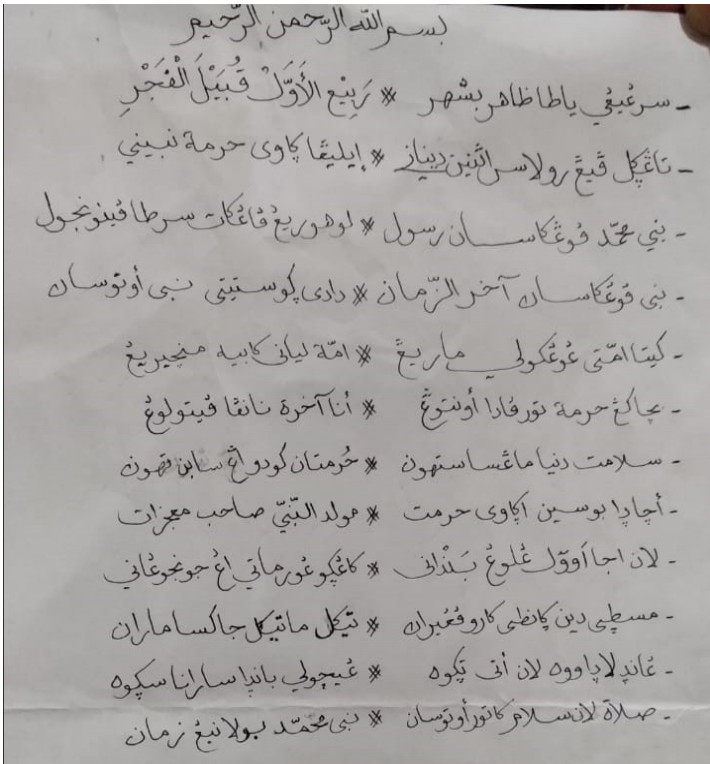 بسم الله الرّحمن الرّحيم
- سرڠيڠي ياطا ظاهر بشهر * رَبِيْع الأَوَّلْ قُبَيْلَ الْفَجْرِ
- تاڠݢل ڤيڠ رولاس اثنين ديناني * إيليڠا ݢاوى حرمة نبيني
- نبي محمّد فوڠكاسان رسول * لوهوريڠ ڤاڠكات سرطا ڤينونجول
- نبى ڤوڠكاسان آخر الزّمان * دادى ݢوستيتى نبى أوتوسان
- كيتا امّتى غوڠكولي ماريڠ * امّة ليانى كابيه منچيريڠ
- بچاكڠ حرمة تور ڤادا أونتوڠ * أنا آخرة نانڤا ڤيتولوڠ
- سلامت دنيا ماڠسا ستهون * حُرمتان كودو اڠ سابن تهون
- أچادا بوسين اݢاوى حرمت * مولد النّبيّ صاحب معجزات
- لان اجا أووَل ڠلوڠ بَنْدانى * كاڠݢو ڠورماتي اڠ جونجوڠاني
- مسطيى دين ݢانطى كارو ڤڠيران * تيكل ماتيكل جا كسا ماران
- غاندلا ڊاووه لان أتى تݢوه * غيچولي باندا سارانا سكݢوه
- صلاة لان سلام كاتور أوتوسان * نبى محمّد بولانيڠ زمان